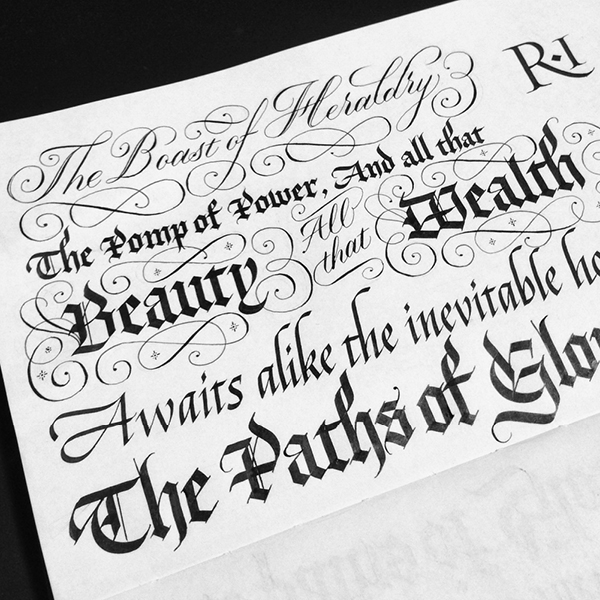 The Boast of Heraldry
R·I
The Pomp of Power, And all that
Beauty All that Wealth
Awaits alike the inevitable ho
The Paths of Glo